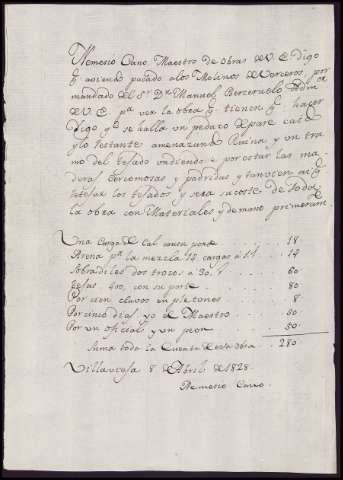 Nemesio Cano Maestro de obras de V. E. digo
q. aviendo pasado a los Molinos de Torceros, por
mandado del Sr. Dn. Manuel Berceruelo
de V. E. pa. ver la obra q. tienen q. hacer
Digo q. se halla un pedazo de pared caido
y lo restante amenazando Ruina, y un tra
mo del tejado undiendose por estar las ma
deras y podridas y tanvien
los tejados y sera su coste de toda
la obra con Materiales y de mano primeramte.
Una Carga de Cal con su porte 18
Arena pa. la mezcla 14 cargas á 1 r. 14
dos trozos á 30 r. 60
tejas 400, con su porte 80
Por cien clavos 8
Por cinco dias yo el Maestro 50
Por un oficial y un peon 50
Suma toda la Cuenta de esta obra 280
Villaviciosa 8 de Abril de 1828.
Nemesio Cano.